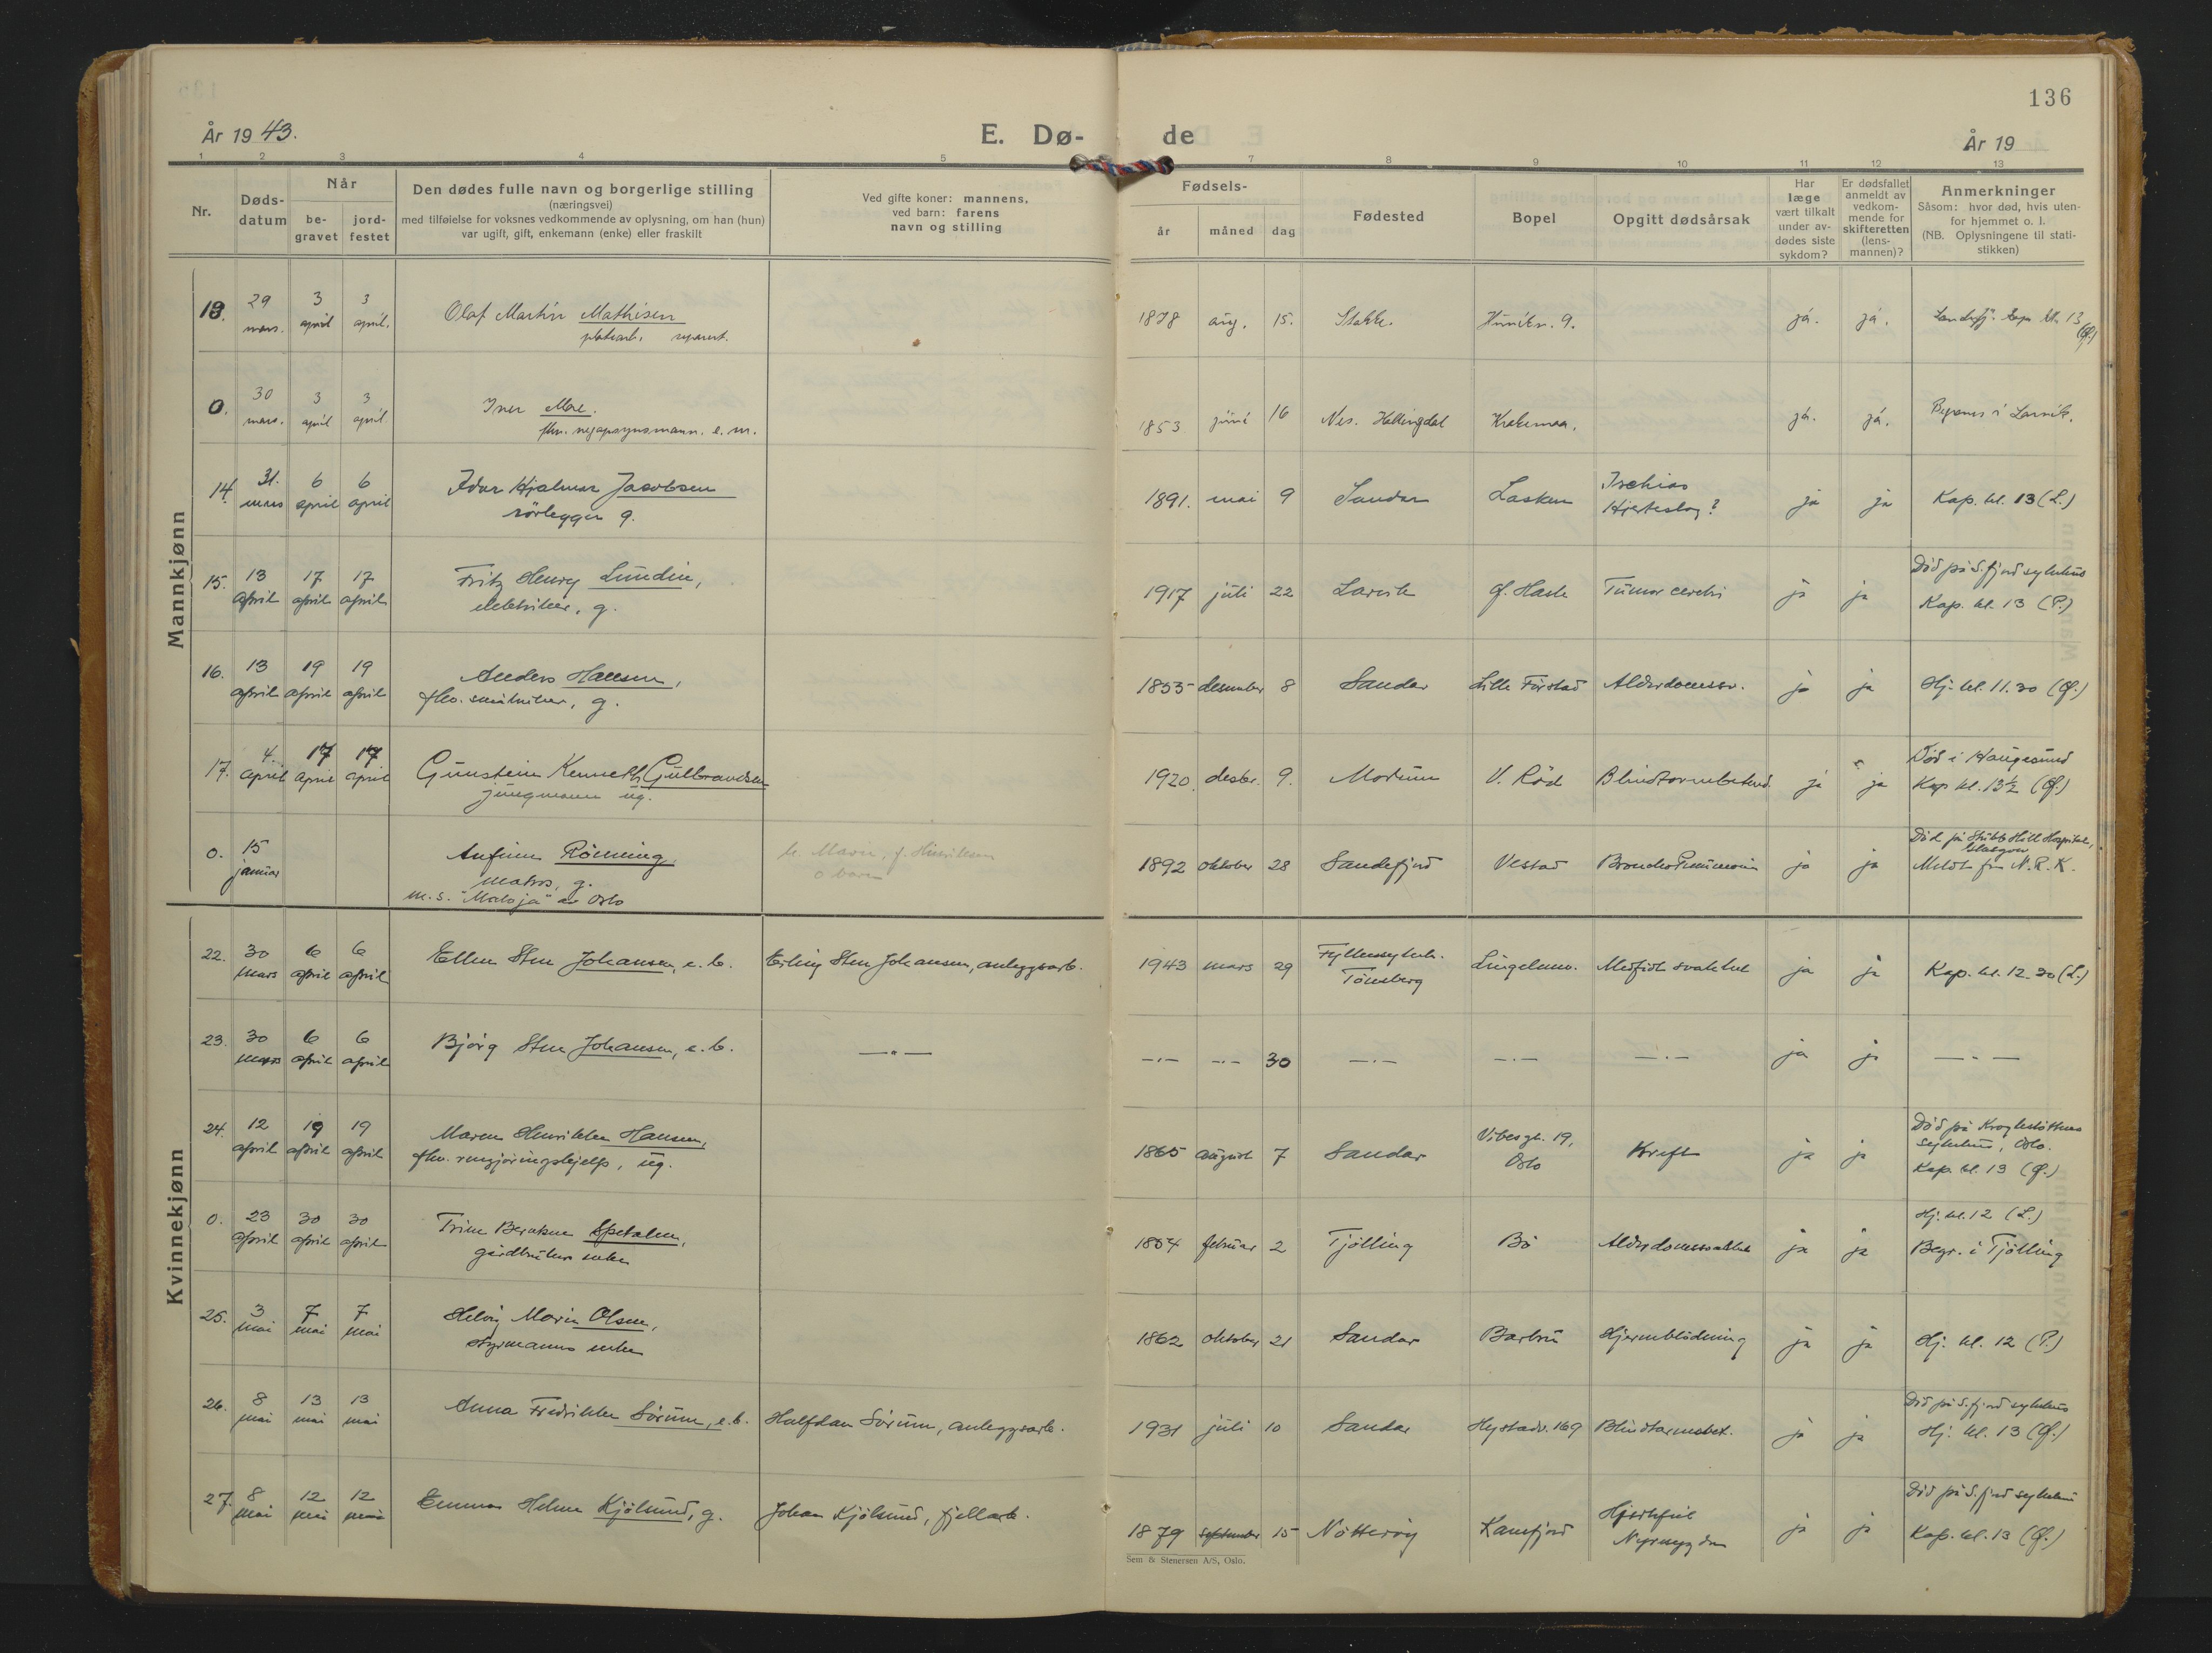 136
År 1943.
E. Dø-
de
År 19
1 2 3 4 5 7 8 9 10 11 12 13
Nr.
Døds-
datum
Når
be-
gravet
jord-
festet
Den dødes fulle navn og borgerlige stilling
(næringsvei)
med tilføielse for voksnes vedkommende av oplysning, om han (hun)
var ugift, gift, enkemann (enke) eller fraskilt
Ved gifte koner: mannens,
ved barn: farens
navn og stilling
Fødsels-
år
måned
dag
Fødested
Bopel
Opgitt dødsårsak
Har
læge
vært tilkalt
under av-
dødes siste
sykdom?
Er dødsfallet
anmeldt av
vedkom-
mende for
skifteretten
(lens-
mannen)?
Anmerkninger
Såsom: hvor død, hvis uten-
for hjemmet o. l.
(NB. Oplysningene til stati-
stikken)
Mannkjønn
13. 29 3 3 Olaf Martin Mathisen 1878 aug. 15. ja. ja. 13
mars. april april. separert.
0. 30 3 3 Iver Moe. 1853 juni 16 Nes. Hallingdal ja. ja. i Larvik.
mars. april april e. m.
14. 31. 6 6 Hjalmar Jacobsen 1891. mai 9 Sandar Ischias ja ja Kap. kl. 13 (L.)
mars april april rørlegger g. Hjerteslag?
15. 13 17 17 Fritz Henry Lundin, 1917 juli 22 Larvik Tumor cerebri ja ja Død på S.fjord sykehus
april april april elektriker, g. Kap. kl. 13 (P.)
16. 13 19 19 Anders Hansen, 1855 desember 8 Sandar Lille Alderdomssv. ja ja Hj. kl. 11.30 (Ø.)
april april april fhv. småbruker, g.
17. 4. 17 17 Gunstein Kenneth Gulbrandsen 1920. desbr. 9. Modum V. Råd ja ja Død i Haugesund
april april april jungmann ug. Kap kl. 13½ (Ø.)
0. 15 Anfinn Rönning, 1892 oktober 28 Sandefjord Vestad ja ja Død på Stobb Hill Hospital,
januar matros, g. Glasgow
m.s. "Maloja" av Oslo Meldt fra N.R.K.
Kvinnekjønn
22. 30 6 6 Ellen Sten Johansen, e. b. Erling Sten Johansen, anleggsarb. 1943 mars 29 Fylkessykeh. Medfødt svakhet ja ja Kap. kl. 12.30 (L.)
mars april april Tönsberg
23. 30 6 6 Bjørg Sten Johansen, e. b. —"— —.— —.— 30 —.— —.— —.— ja ja —"—
mars april april
24. 12 19 19 Maren Henrikke Hansen, 1865 august 7 Sandar Vibesgt. 19, Kreft ja ja Død på Krogstøttens
april april april fhv. rengjøringshjelp, ug. Oslo sykehus, Oslo.
Kap. kl. 13 (Ø.)
0. 23 30 30 Trine Spetalen, 1854 februar 2 Tjölling Bö ja ja Hj. kl. 12 (L.)
april april april gårdbrukers enke Begr. i Tjölling
25. 3 7 7 Helvig Marie Olsen, 1862 oktober 21 Sandar Hjerneblödning ja ja Hj. kl. 12 (P.)
mai mai mai styrmanns enke
26. 8 13 13 Anna Fredrikke Sörum, e. b. Halfdan Sörum, anleggsarb. 1931 juli 10 Sandar Hystadv. 169 Blindtarmsbet. ja ja Død på S.fjord sykehus
mai mai mai Hj. kl. 13 (Ø.)
27. 8 12 12 Emma Helene Kjölsund, g. Johan Kjölsund, fjellarb. 1879 september 15 Nötteröy Kamfjord Hjertefeil ja ja Død på S.fjord sykehus
mai mai mai Kap. kl. 13 (Ø.)
Sem & Stenersen A/S, Oslo.